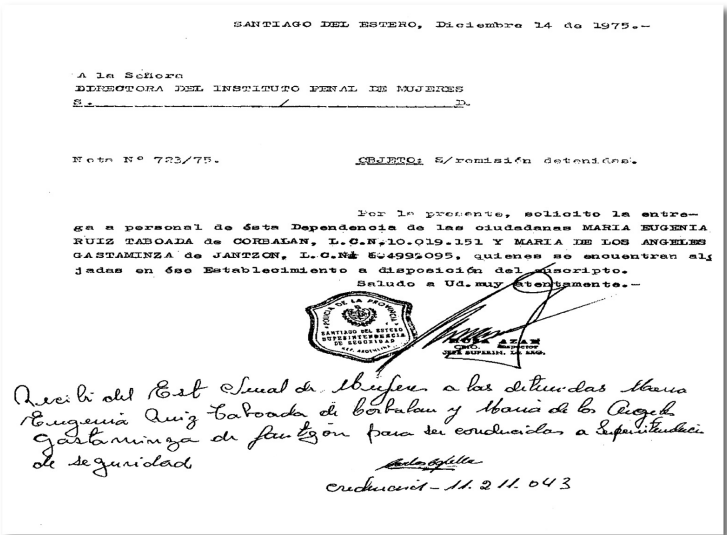 SANTIAGO DEL ESTERO, Diciembre 14 de 1975.-
A la Señora
DIRECTORA DEL INSTITUTO PENAL DE MUJERES
S. / D.
Nota Nº 723/75.
OBJETO: S/remisión detenidas.
Por la presente, solicito la entre-
ga a personal de ésta Dependencia de las ciudadanas MARIA EUGENIA
RUIZ TABOADA de CORBALAN, L.C.N.10.019.151 Y MARIA DE LOS ANGELES
GASTAMINZA de JANTZON, L.C.Nº 5.499.095, quienes se encuentran alo
jadas en ése Establecimiento a disposición del suscripto.
Saludo a Ud.muy atentamente.-
POLICIA DE LA PROVINCIA
SANTIAGO DEL ESTERO
SUPERINTENDENCIA
DE SEGURIDAD
REP. ARGENTINA
MUSA AZAR
INSPECTOR
JEFE SUPERIN. DE SEG.
Recibi del Est Penal de Mujeres a las detenidas Maria
Eugenia Ruiz Taboada de Corbalan y Maria de los Angeles
Gastaminza de Jantzón para ser conducidas a Superintendencia
de seguridad
credencial - 11.211.043